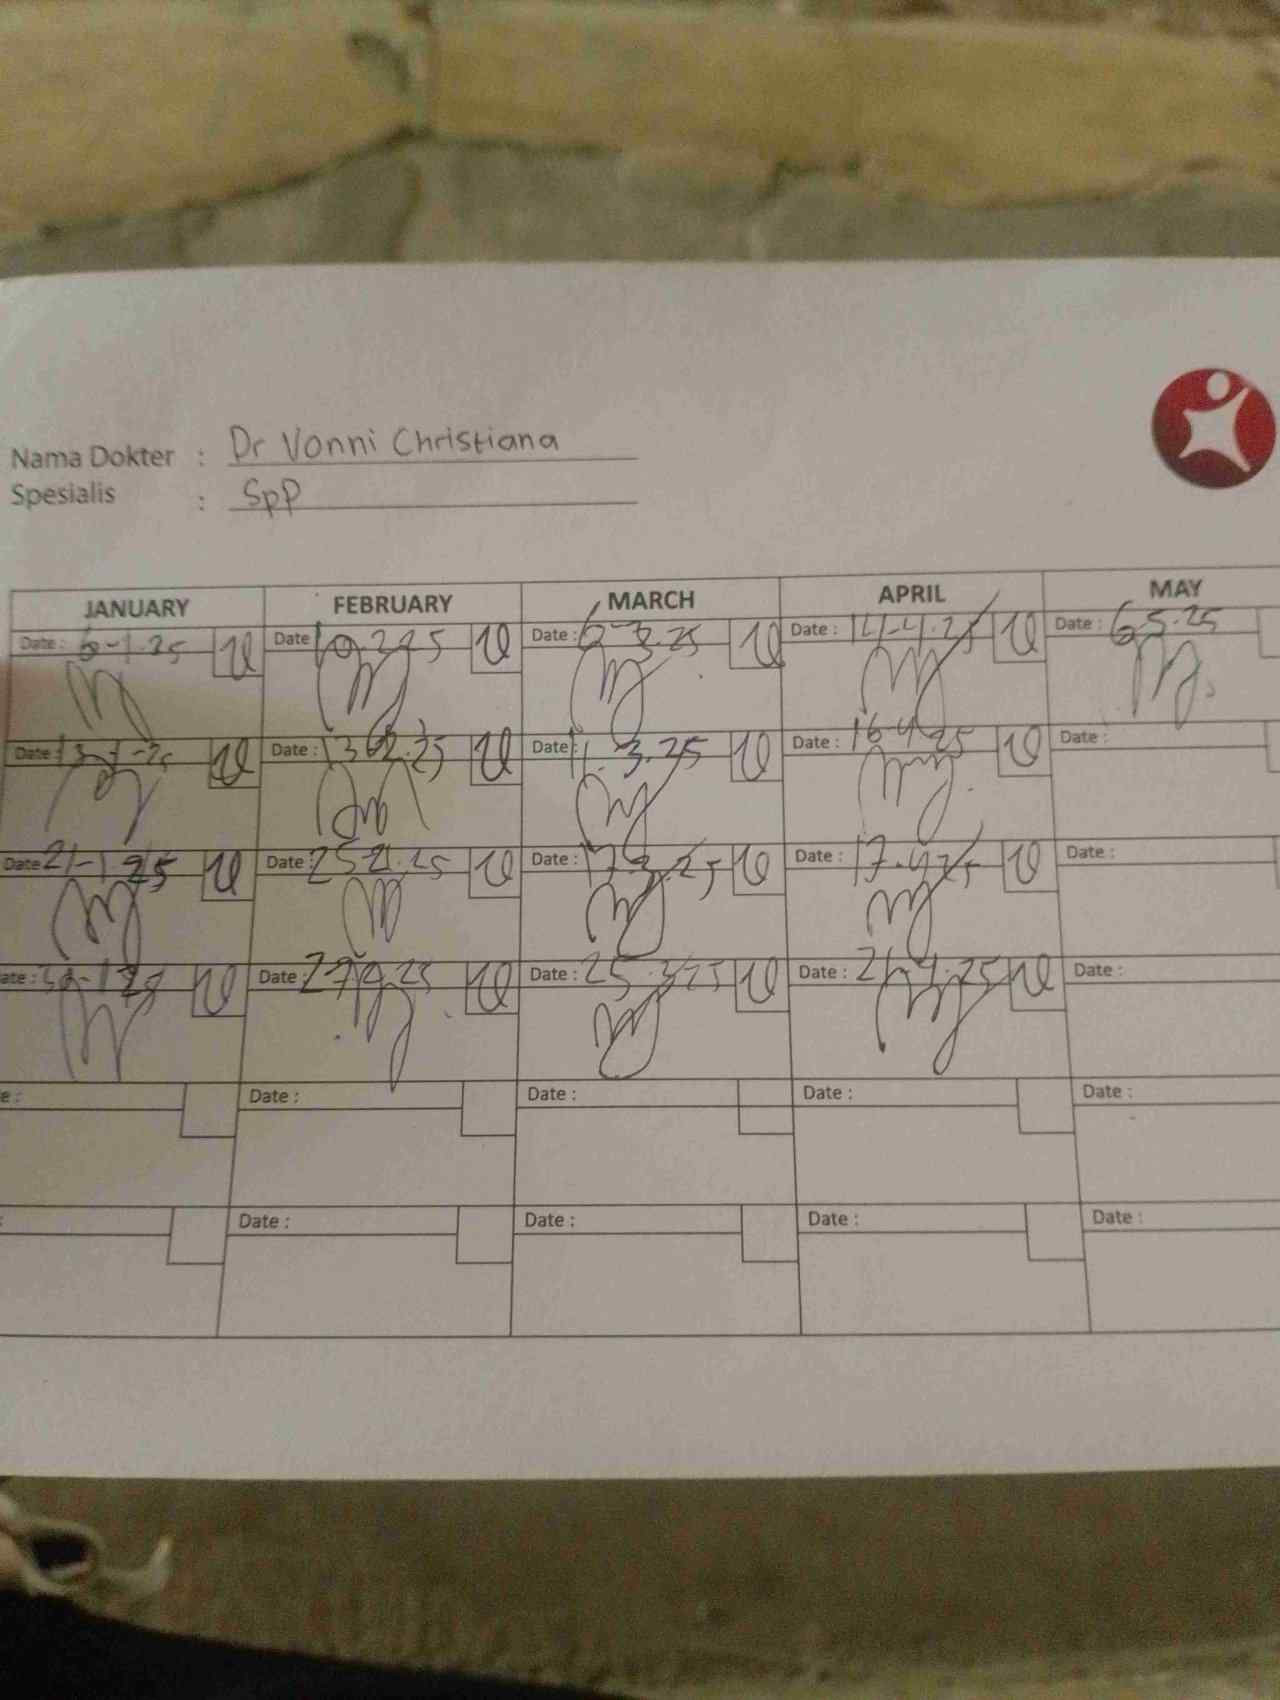 Nama Dokter : Dr Vonni Christiana
Spesialis : SpP
JANUARY FEBRUARY MARCH APRIL MAY
Date : 6-1-25 Date 10.2.25 Date : 6-3.25 Date : 14-4.25 Date : 6.5.25
Date : 13-1-25 Date : 13 02.25 Date : 11.3.25 Date : 16.4.25 Date :
Date 21-1-25 Date : 25 2.25 Date : 17.3.25 Date : 17.4.25 Date :
ate : Date : 27 25 Date : 25.3.25 Date : 21.4.25 Date :
e : Date : Date : Date : Date :
: Date : Date : Date : Date :